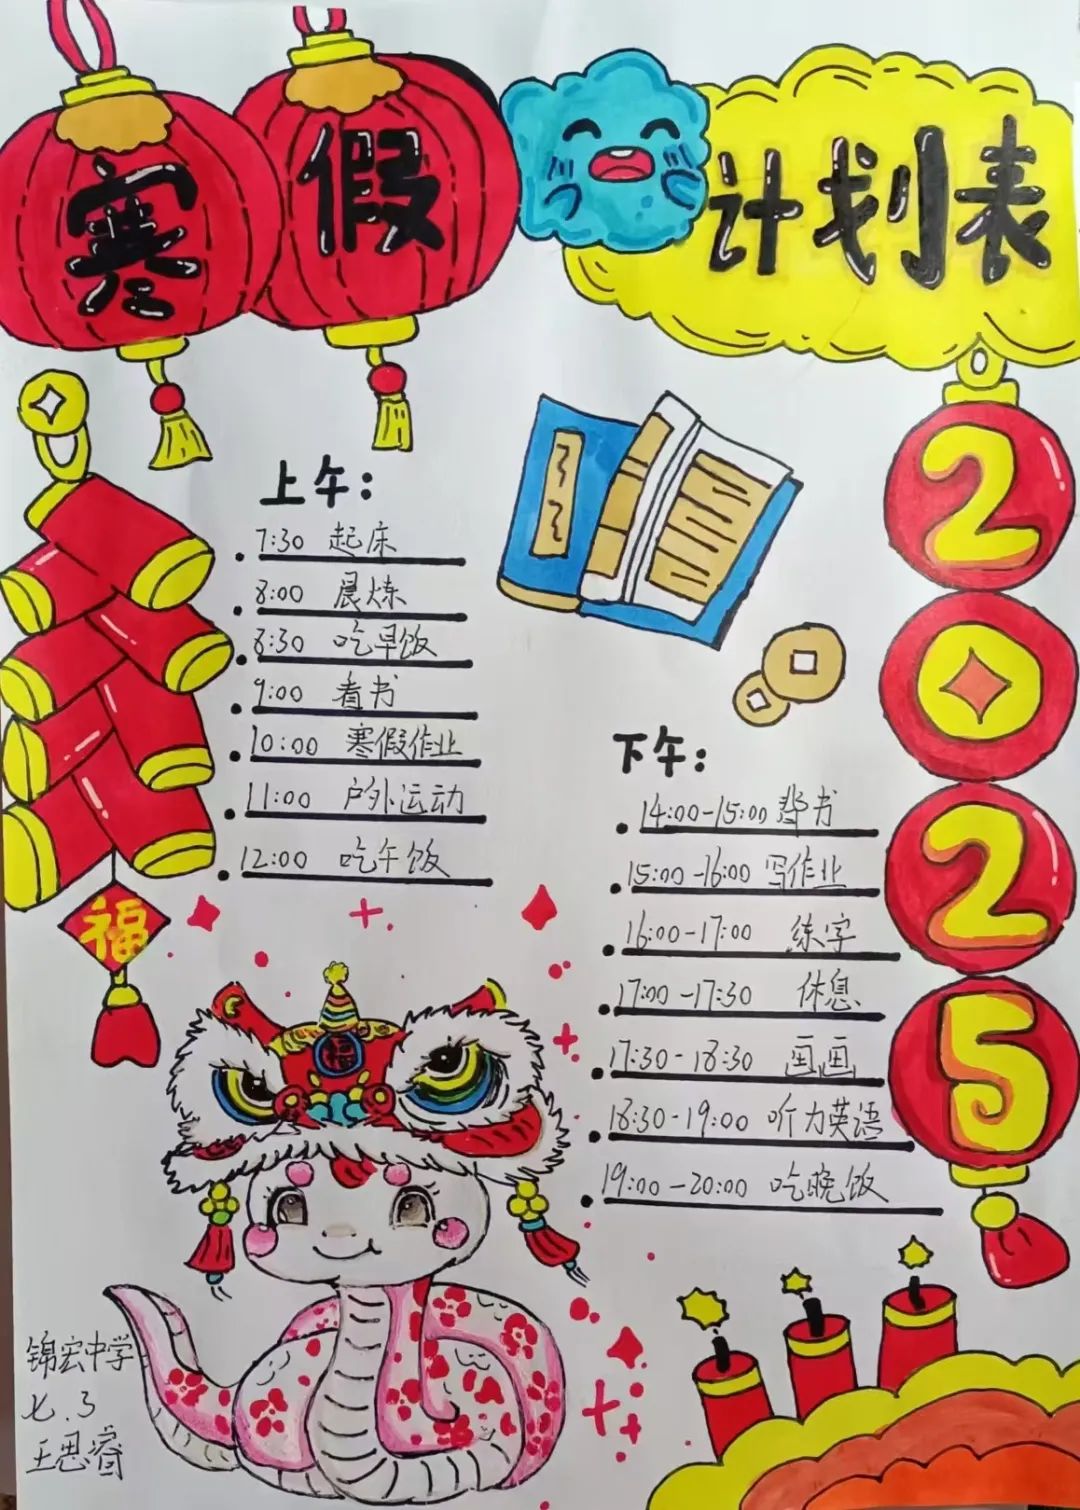 寒假计划表
2025
上午：
7:30 起床
8:00 晨炼
8:30 吃早饭
9:00 看书
10:00 寒假作业
11:00 户外运动
12:00 吃午饭
下午：
14:00-15:00 背书
15:00-16:00 写作业
16:00-17:00 练字
17:00-17:30 休息
17:30-18:30 画画
18:30-19:00 听力英语
19:00-20:00 吃晚饭
福
福
锦宏中学
七.3
王思睿